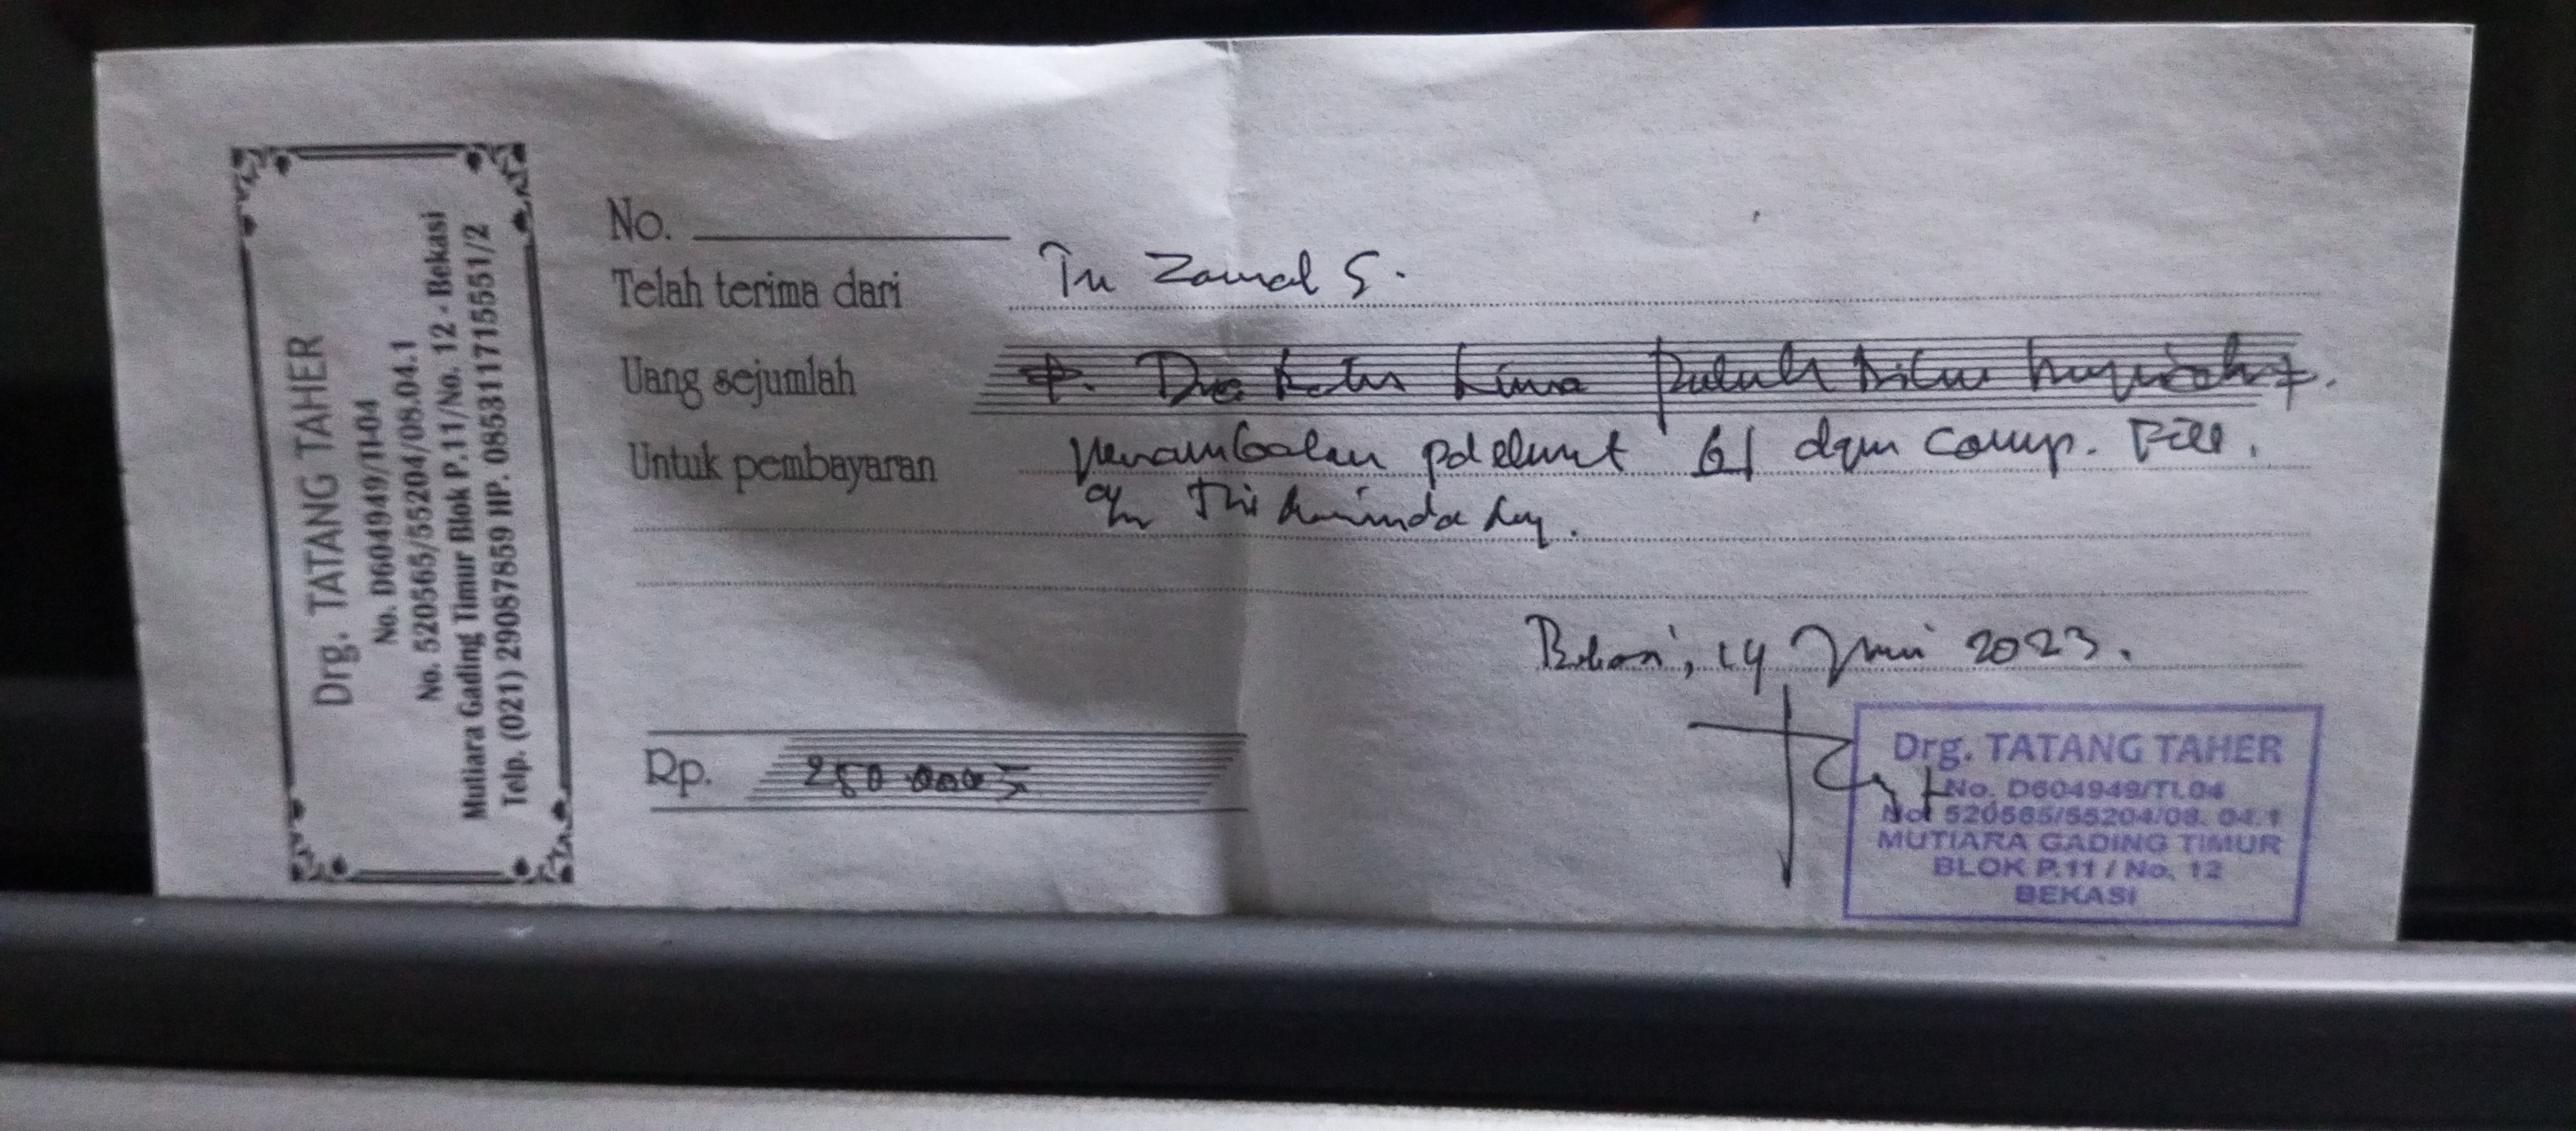 Drg. TATANG TAHER
No. D6049949/TI-04
No. 520565/55204/08.04.1
Mutiara Gading Timur Blok P.11/No. 12 - Bekasi
Telp. (021) 29087859 HP. 085311715551/2
No.
Telah terima dari Tn Zainal S.
Uang sejumlah Dua Ratus Lima Puluh Ribu Rupiah
Untuk pembayaran penambalan pd element 6| dgn Comp. Fill.
a/n Tri
Bekasi, 14 Juni 2023.
Rp. 250.000
Drg. TATANG TAHER
No. D604949/TI.04
No 520565/55204/08. 04.1
MUTIARA GADING TIMUR
BLOK P.11 / No. 12
BEKASI